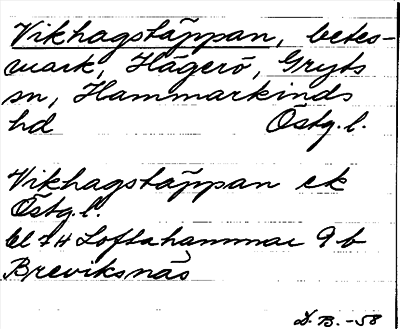 Vikhagstäppan, betes-
mark, Hägerö, Gryts
sn, Hammarkinds
hd Östg.l.
Vikhagstäppan ek
Östg.l.
bl 7H Loftahammar 9b
Breviksnäs
D.B. -58